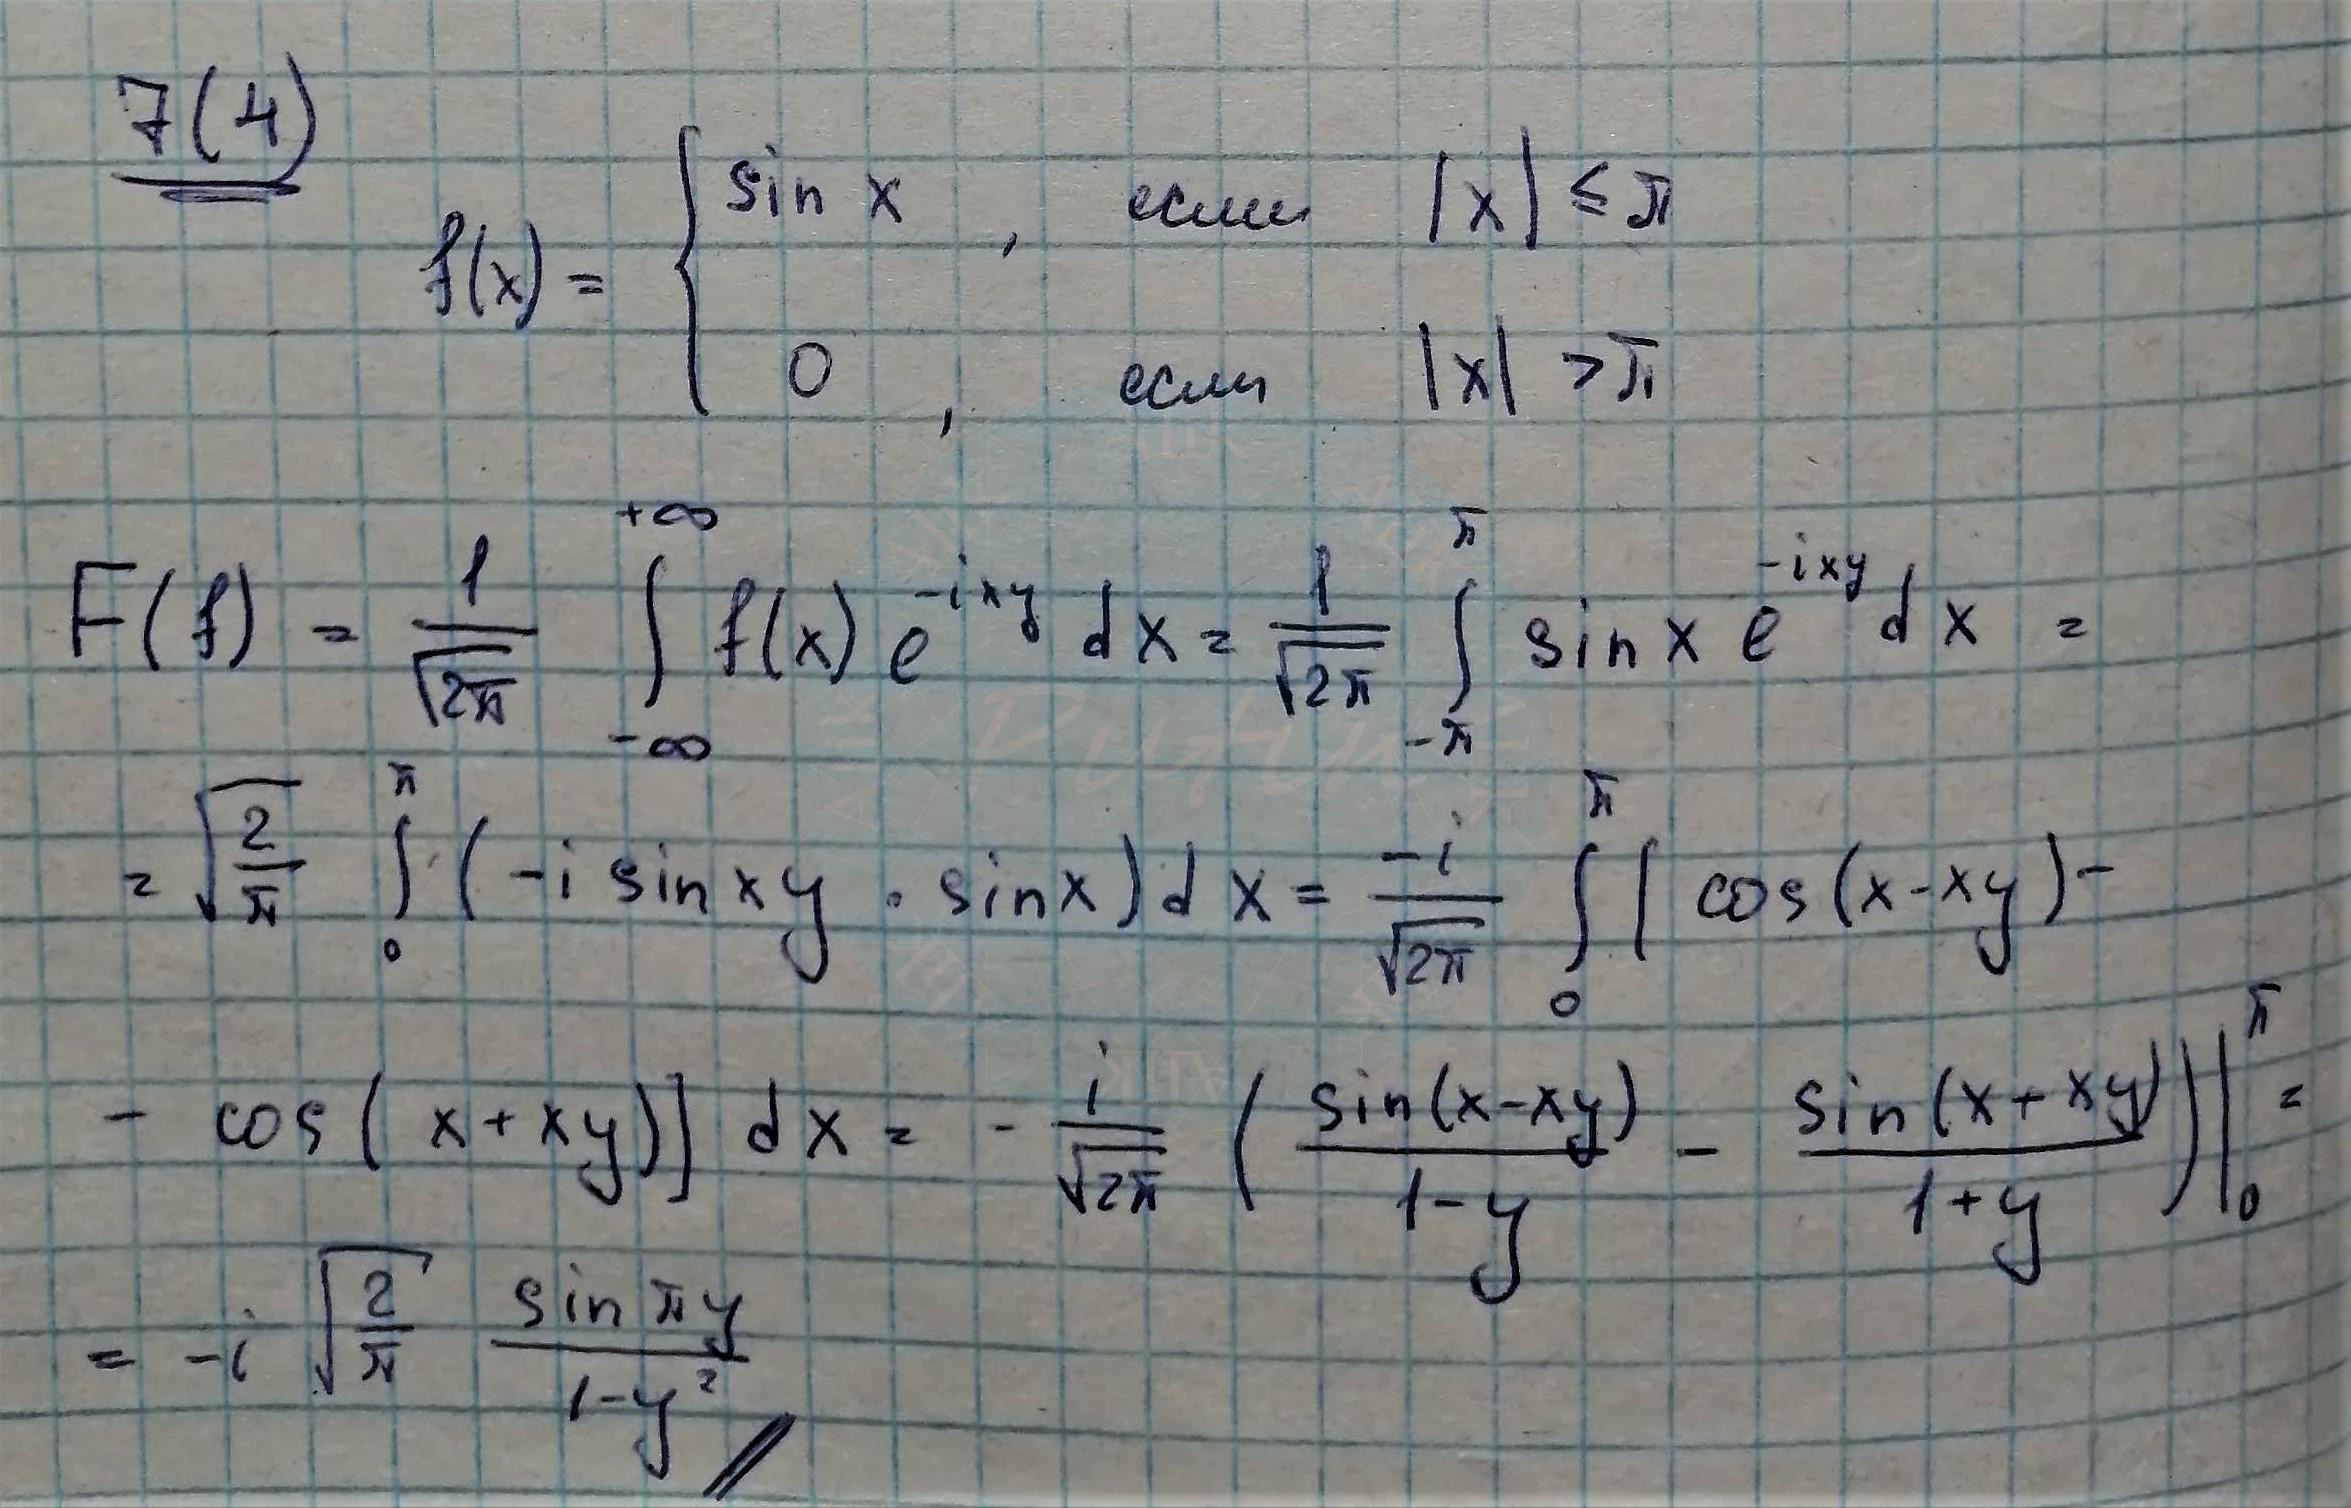 7(4)
f(x) = { sin x , если |x| ≤ π
0 , если |x| > π
F(f) = 1/√2π ∫_{-∞}^{+∞} f(x) e^{-ixy} dx = 1/√2π ∫_{-π}^{π} sin x e^{-ixy} dx =
= √(2/π) ∫_0^π (-i sin xy · sin x) dx = -i/√2π ∫_0^π [ cos(x-xy) -
- cos(x+xy)] dx = - i/√2π ( sin(x-xy)/(1-y) - sin(x+xy)/(1+y) ) |_0^π =
= -i √(2/π) sin πy/(1-y²) //